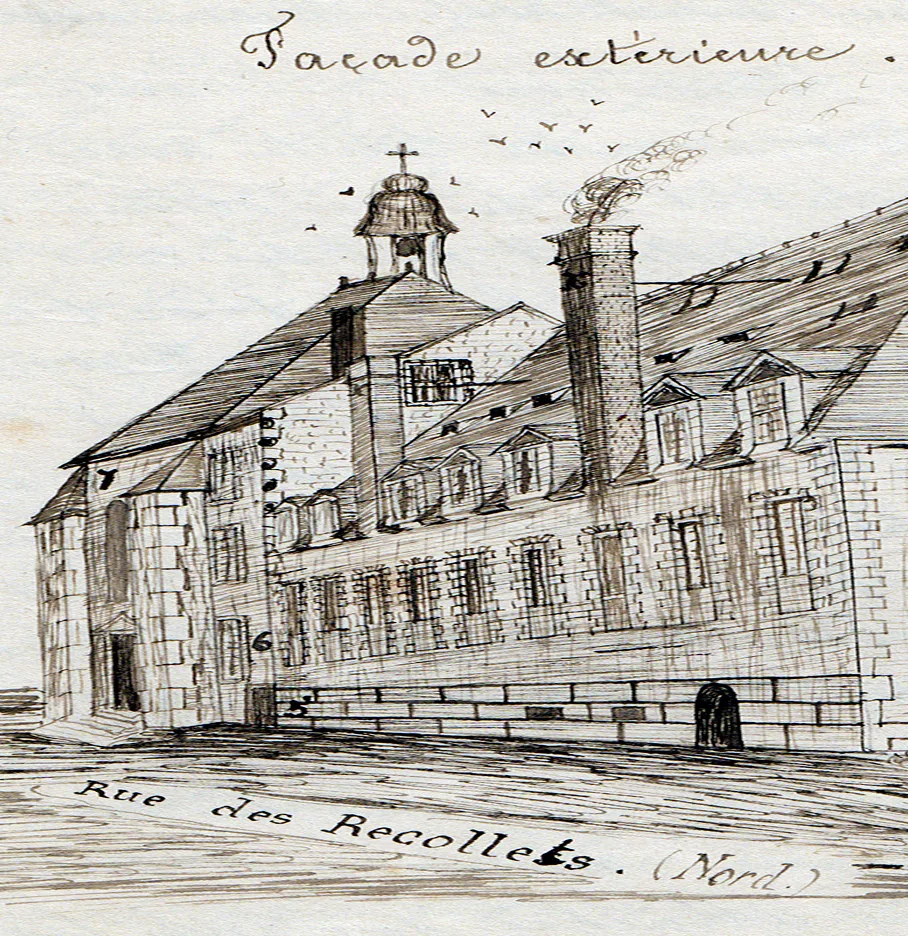 Façade extérieure.
6
5
Rue des Recollets. (Nord.)